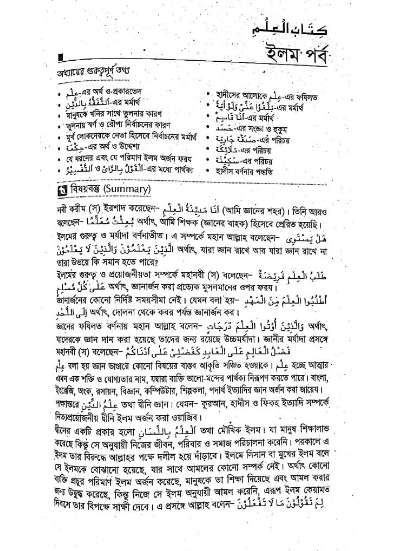 كِتَابُ الْعِلْمِ
ইলম পর্ব
অধ্যায়ের গুরুত্বপূর্ণ তথ্য
• عِلْم-এর অর্থ ও প্রকারভেদ
• اَلتَّفَقُّهُ بِالدِّيْنِ-এর মর্মার্থ
• মানুষকে খনির সাথে তুলনার কারণ
• তুলনায় স্বর্ণ ও রৌপ্য নির্বাচনের কারণ
• মূর্খ লোকদেরকে নেতা হিসেবে নির্বাচনের মর্মার্থ
• حِكْمَة-এর অর্থ ও উদ্দেশ্য
• যে ধরনের এবং যে পরিমাণ ইলম অর্জন ফরয
• ও اَلتَّفْسِيْرُ-এর মধ্যে পার্থক্য
• হাদীসের আলোকে عِلْم-এর ফযিলত
• بَلِّغُوْا عَنِّىْ وَلَوْ اٰيَةً-এর মর্মার্থ
• اَنَا قَاسِمٌ-এর মর্মার্থ
• حَسَد-এর সংজ্ঞা ও হুকুম
• صَدَقَة جَارِيَة-এর পরিচয়
• مَلَائِكَة-এর পরিচয়
• سَكِيْنَة-এর পরিচয়
• হাদীস বর্ণনার পদ্ধতি
বিষয়বস্তু (Summary)
নবী করীম (স) ইরশাদ করেছেন– اَنَا مَدِيْنَةُ الْعِلْمِ (আমি জ্ঞানের শহর)। তিনি আরও
বলেছেন– بُعِثْتُ مُعَلِّمًا অর্থাৎ, আমি শিক্ষক (জ্ঞানের বাহক) হিসেবে প্রেরিত হয়েছি।
ইলমের গুরুত্ব ও মর্যাদা বর্ণনাতীত। এ সম্পর্কে মহান আল্লাহ বলেছেন– هَلْ يَسْتَوِى
الَّذِيْنَ يَعْلَمُوْنَ وَالَّذِيْنَ لَا يَعْلَمُوْنَ অর্থাৎ, যারা জ্ঞান রাখে আর যারা জ্ঞান রাখে না
তারা উভয়ে কি সমান হতে পারে?
ইলমের গুরুত্ব ও প্রয়োজনীয়তা সম্পর্কে মহানবী (স) বলেছেন– طَلَبُ الْعِلْمِ فَرِيْضَةٌ
عَلٰى كُلِّ مُسْلِمٍ অর্থাৎ, জ্ঞানার্জন করা প্রত্যেক মুসলমানের ওপর ফরয।
জ্ঞানার্জনের কোনো নির্দিষ্ট সময়সীমা নেই। যেমন বলা হয়– اُطْلُبُوا الْعِلْمَ مِنَ الْمَهْدِ
اِلَى اللَّحْدِ অর্থাৎ, দোলনা থেকে কবর পর্যন্ত জ্ঞানার্জন কর।
জ্ঞানের ফযিলত বর্ণনায় মহান আল্লাহ বলেছেন– وَالَّذِيْنَ اُوْتُوا الْعِلْمَ دَرَجَاتٍ অর্থাৎ,
যাদেরকে জ্ঞান দান করা হয়েছে তাদের জন্য রয়েছে উচ্চমর্যাদা। জ্ঞানীর মর্যাদা প্রসঙ্গে
মহানবী (স) বলেছেন– فَضْلُ الْعَالِمِ عَلَى الْعَابِدِ كَفَضْلِىْ عَلٰى اَدْنَاكُمْ
عِلْم বলা হয় জ্ঞান ভাণ্ডারে কোনো বিষয়ের বাস্তব আকৃতি সঞ্চিত হওয়াকে। عِلْم হচ্ছে আত্মার
এমন এক শক্তি ও যোগ্যতার নাম, যদ্বারা ব্যক্তি ভালো-মন্দের পার্থক্য নিরূপণ করতে পারে। বাংলা,
ইংরেজি, অংক, রসায়ন, বিজ্ঞান, কম্পিউটার, শিল্পকলা, পদার্থ ইত্যাদির জ্ঞান অর্জন করা জায়েয।
পক্ষান্তরে عِلْمُ الدِّيْنِ তথা দ্বীনি জ্ঞান। যেমন– কুরআন, হাদীস ও ফিকহ ইত্যাদি সম্পর্কে
নিত্যপ্রয়োজনীয় দ্বীনি ইলম অর্জন করা ওয়াজিব।
দ্বীনের একটি প্রকার হলো اَلْعِلْمُ بِاللِّسَانِ তথা মৌখিক ইলম। যা মানুষ শিক্ষাদান
করেছে কিন্তু সে অনুযায়ী নিজের জীবন, পরিবার ও সমাজ পরিচালনা করেনি। পরকালে এ
ইলম তার বিরুদ্ধে আল্লাহর পক্ষে দলীল হয়ে দাঁড়াবে। ইলমে লিসান বা মুখের ইলম বলে
সে ইলমকে বোঝানো হয়েছে, যার সাথে আমলের কোনো সম্পর্ক নেই। অর্থাৎ কোনো
ব্যক্তি প্রচুর পরিমাণ ইলম অর্জন করেছে, মানুষকে তা শিক্ষা দিয়েছে এবং আমল করার
জন্য উদ্বুদ্ধ করেছে, কিন্তু নিজে সে ইলম অনুযায়ী আমল করেনি, এরূপ ইলম কেয়ামত
দিবসে তার বিপক্ষে সাক্ষী দেবে। এ প্রসঙ্গে আল্লাহ বলেন– لِمَ تَقُوْلُوْنَ مَا لَا تَفْعَلُوْنَ